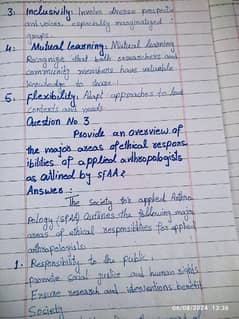 3. Inclusivity: Involve diverse perspectives
and voices, especially marginalized
groups.
4. Mutual learning: Mutual learning
Recognize that both researchers and
community members have valuable
knowledge to share.
5. Flexibility: Adapt approaches to local
contexts and needs
Question No. 3
Provide an overview of
the major areas of ethical respons
ibilities of applied anthropologists
as outlined by SfAA?
Answer:
The Society for applied Anthro
Pology (SfAA) outlines the following major
areas of ethical responsibilities for applied
anthropologists
1. Responsibility to the public:
promote social justice and human rights
Ensure research and interventions benefit
Society
08/08/2024 13:36